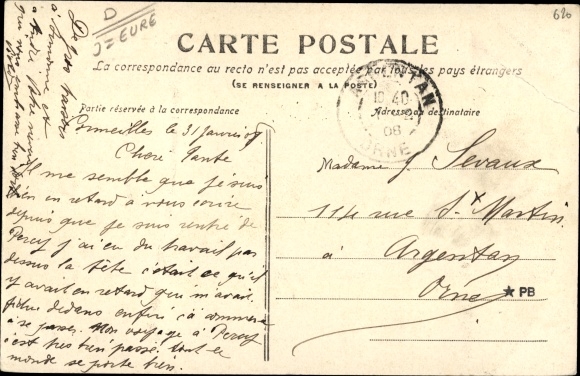 620
D
J=EURE
CARTE POSTALE
La correspondance au recto n'est pas acceptée par tous les pays étrangers
(SE RENSEIGNER A LA POSTE)
Partie réservée à la correspondance
Adresse du destinataire
ARGENTAN
10 40
08
ORNE
Cormeilles le 31 Janvier 08
Chère Tante
Il me semble que je suis
bien en retard à vous écrire
depuis que je suis rentré de
Percy j'ai eu du travail par
dessus la tête c'était ce qu'il
y avait en retard qui m'avait
dedans enfin ça commence
à se passer. Mon voyage à Percy
s'est très bien passé. tout le
monde se porte bien.
De gros baisers
à
à André
qui vous
Madame J. Sevaux
114 rue St Martin
à Argentan
Orne
PB